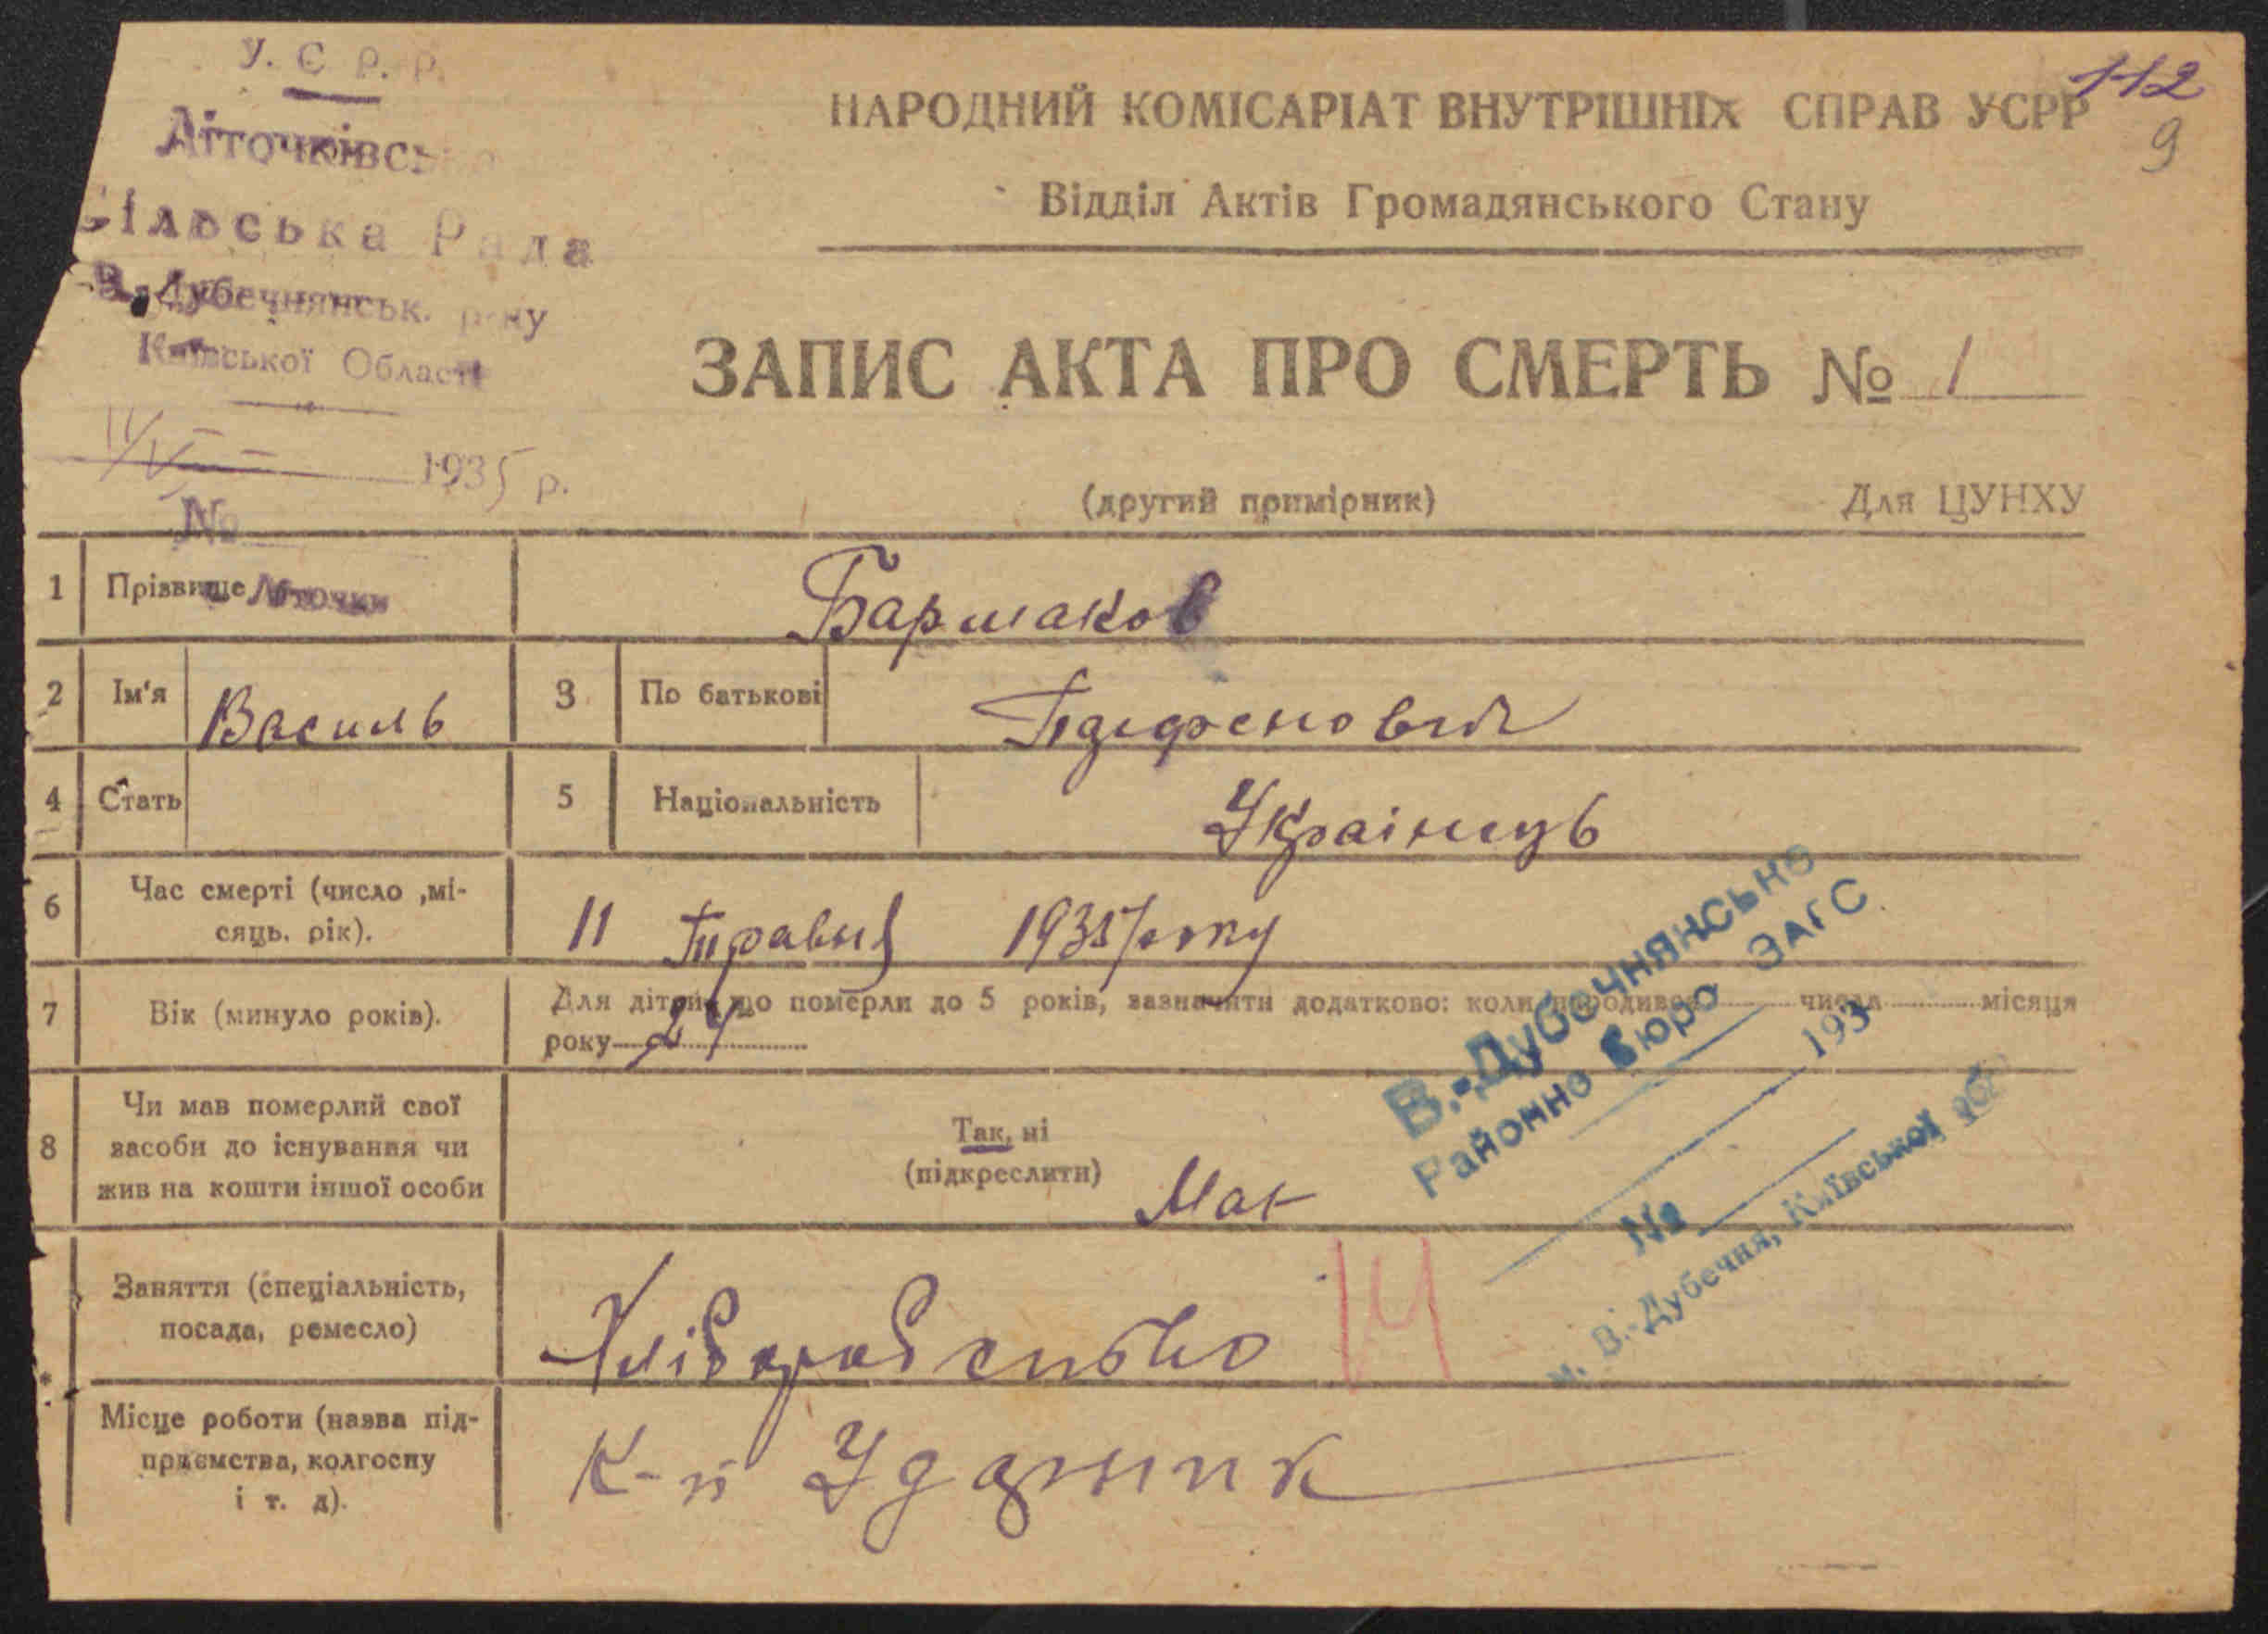 У. С. Р. Р.
Літочківська
Сільська Рада
В. Дубечнянськ. р-ну
Київської Області
1935 р.
№
112
9
НАРОДНИЙ КОМІСАРІАТ ВНУТРІШНІХ СПРАВ УСРР
Відділ Актів Громадянського Стану
ЗАПИС АКТА ПРО СМЕРТЬ № 1
(другий примірник) Для ЦУНХУ
1 Прізвище Літочки Бармаков
2 Ім'я Василь 3 По батькові
4 Стать 5 Національність Украінець
6 Час смерті (число ,мі-
сяць. рік). 11 Травня 1935 року
7 Вік (минуло років). Для дітей, що померли до 5 років, зазначити додатково: коли народився числа місяця
року 24
8 Чи мав померлий свої
засоби до існування чи
жив на кошти іншої особи
Так, ні
(підкреслити) Мав
Заняття (спеціальність,
посада, ремесло) Хліборобство 14
Місце роботи (назва під-
приємства, колгоспу
і т. д).
К-п Ударник
В.-Дубечнянське
Районне Бюро ЗАГС
193
№
м. В.-Дубечня, Київської обл